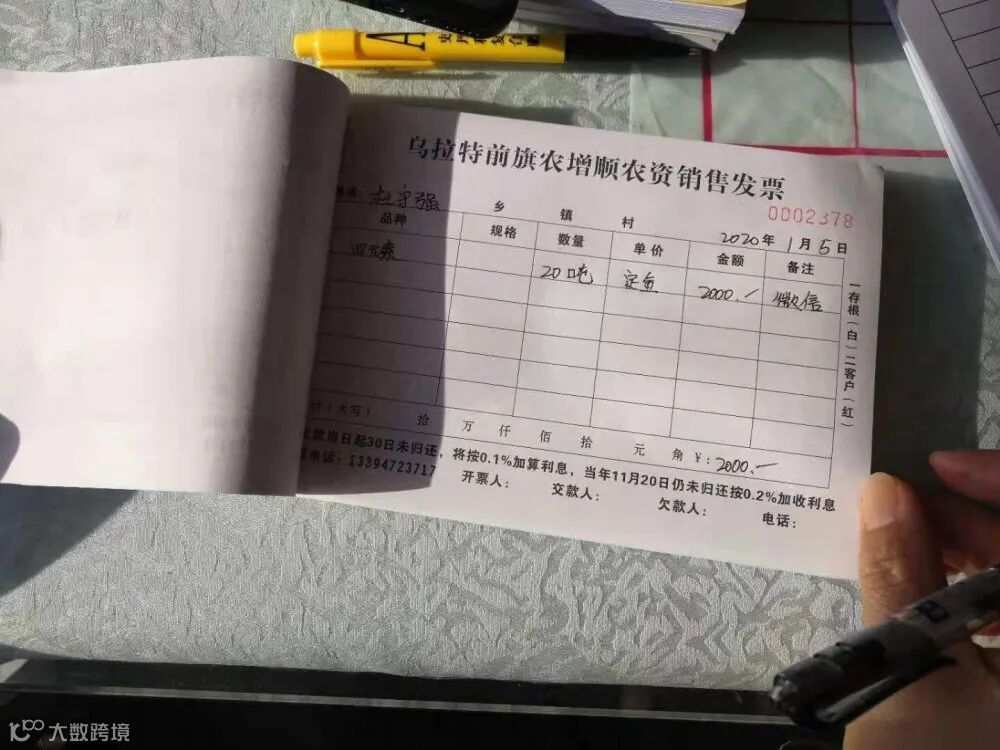 乌拉特前旗农增顺农资销售发票
0002378
杜守强 乡 镇 村 2020年1月5日
品种 规格 数量 单价 金额 备注
四元素 20吨 定金 2000.— 微信
一存根(白)二客户(红)
(大写) 拾 万 仟 佰 拾 元 角 ¥:2000.—
当日起30日未归还,将按0.1%加算利息,当年11月20日仍未归还按0.2%加收利息
电话:13394723717 开票人: 交款人: 欠款人: 电话:
大数跨境